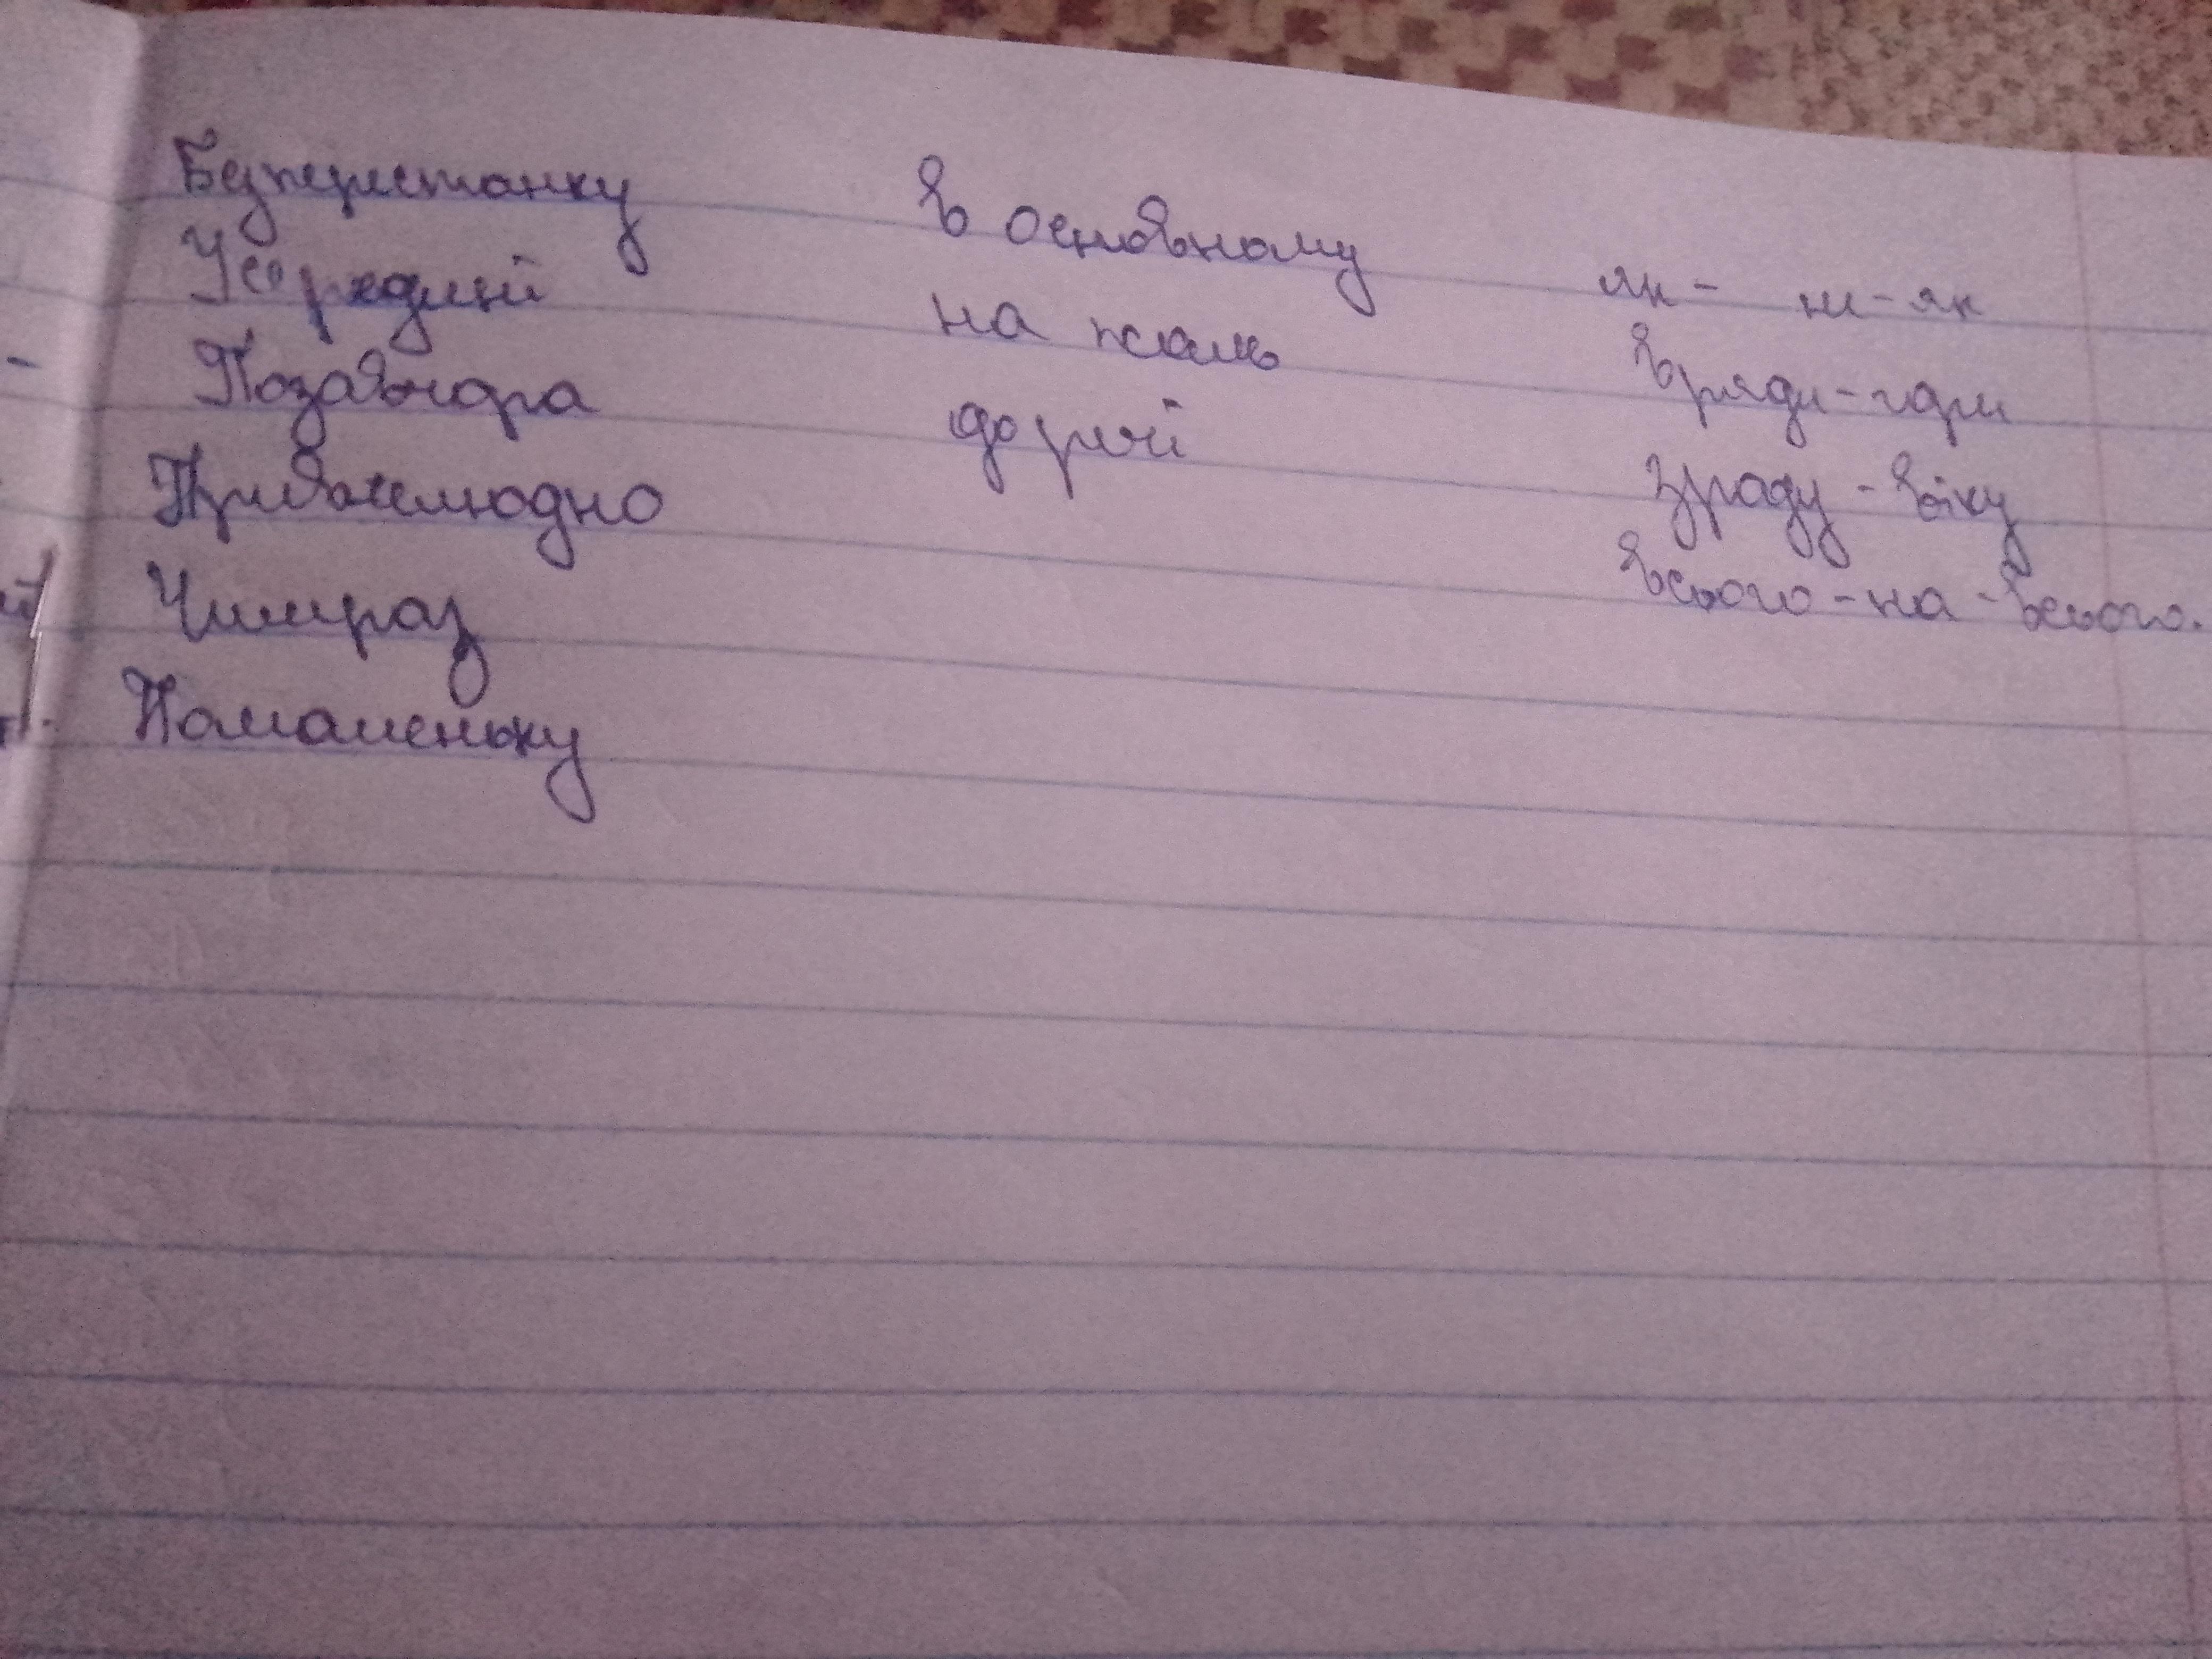 Безперестанку
Усередині
Позавчора
Привселюдно
Чимраз
Помаленьку
в основному
на жаль
до речі
як - не-як
вряди-годи
зроду-віку
всього-на-всього.